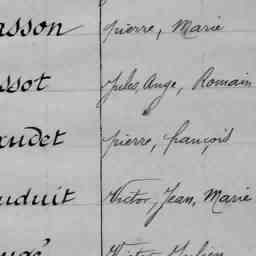 sson pierre, Marie
ssot Jules, Ange, Romain
udet pierre, françois
uduit Victor, Jean, Marie
Victor, Julien